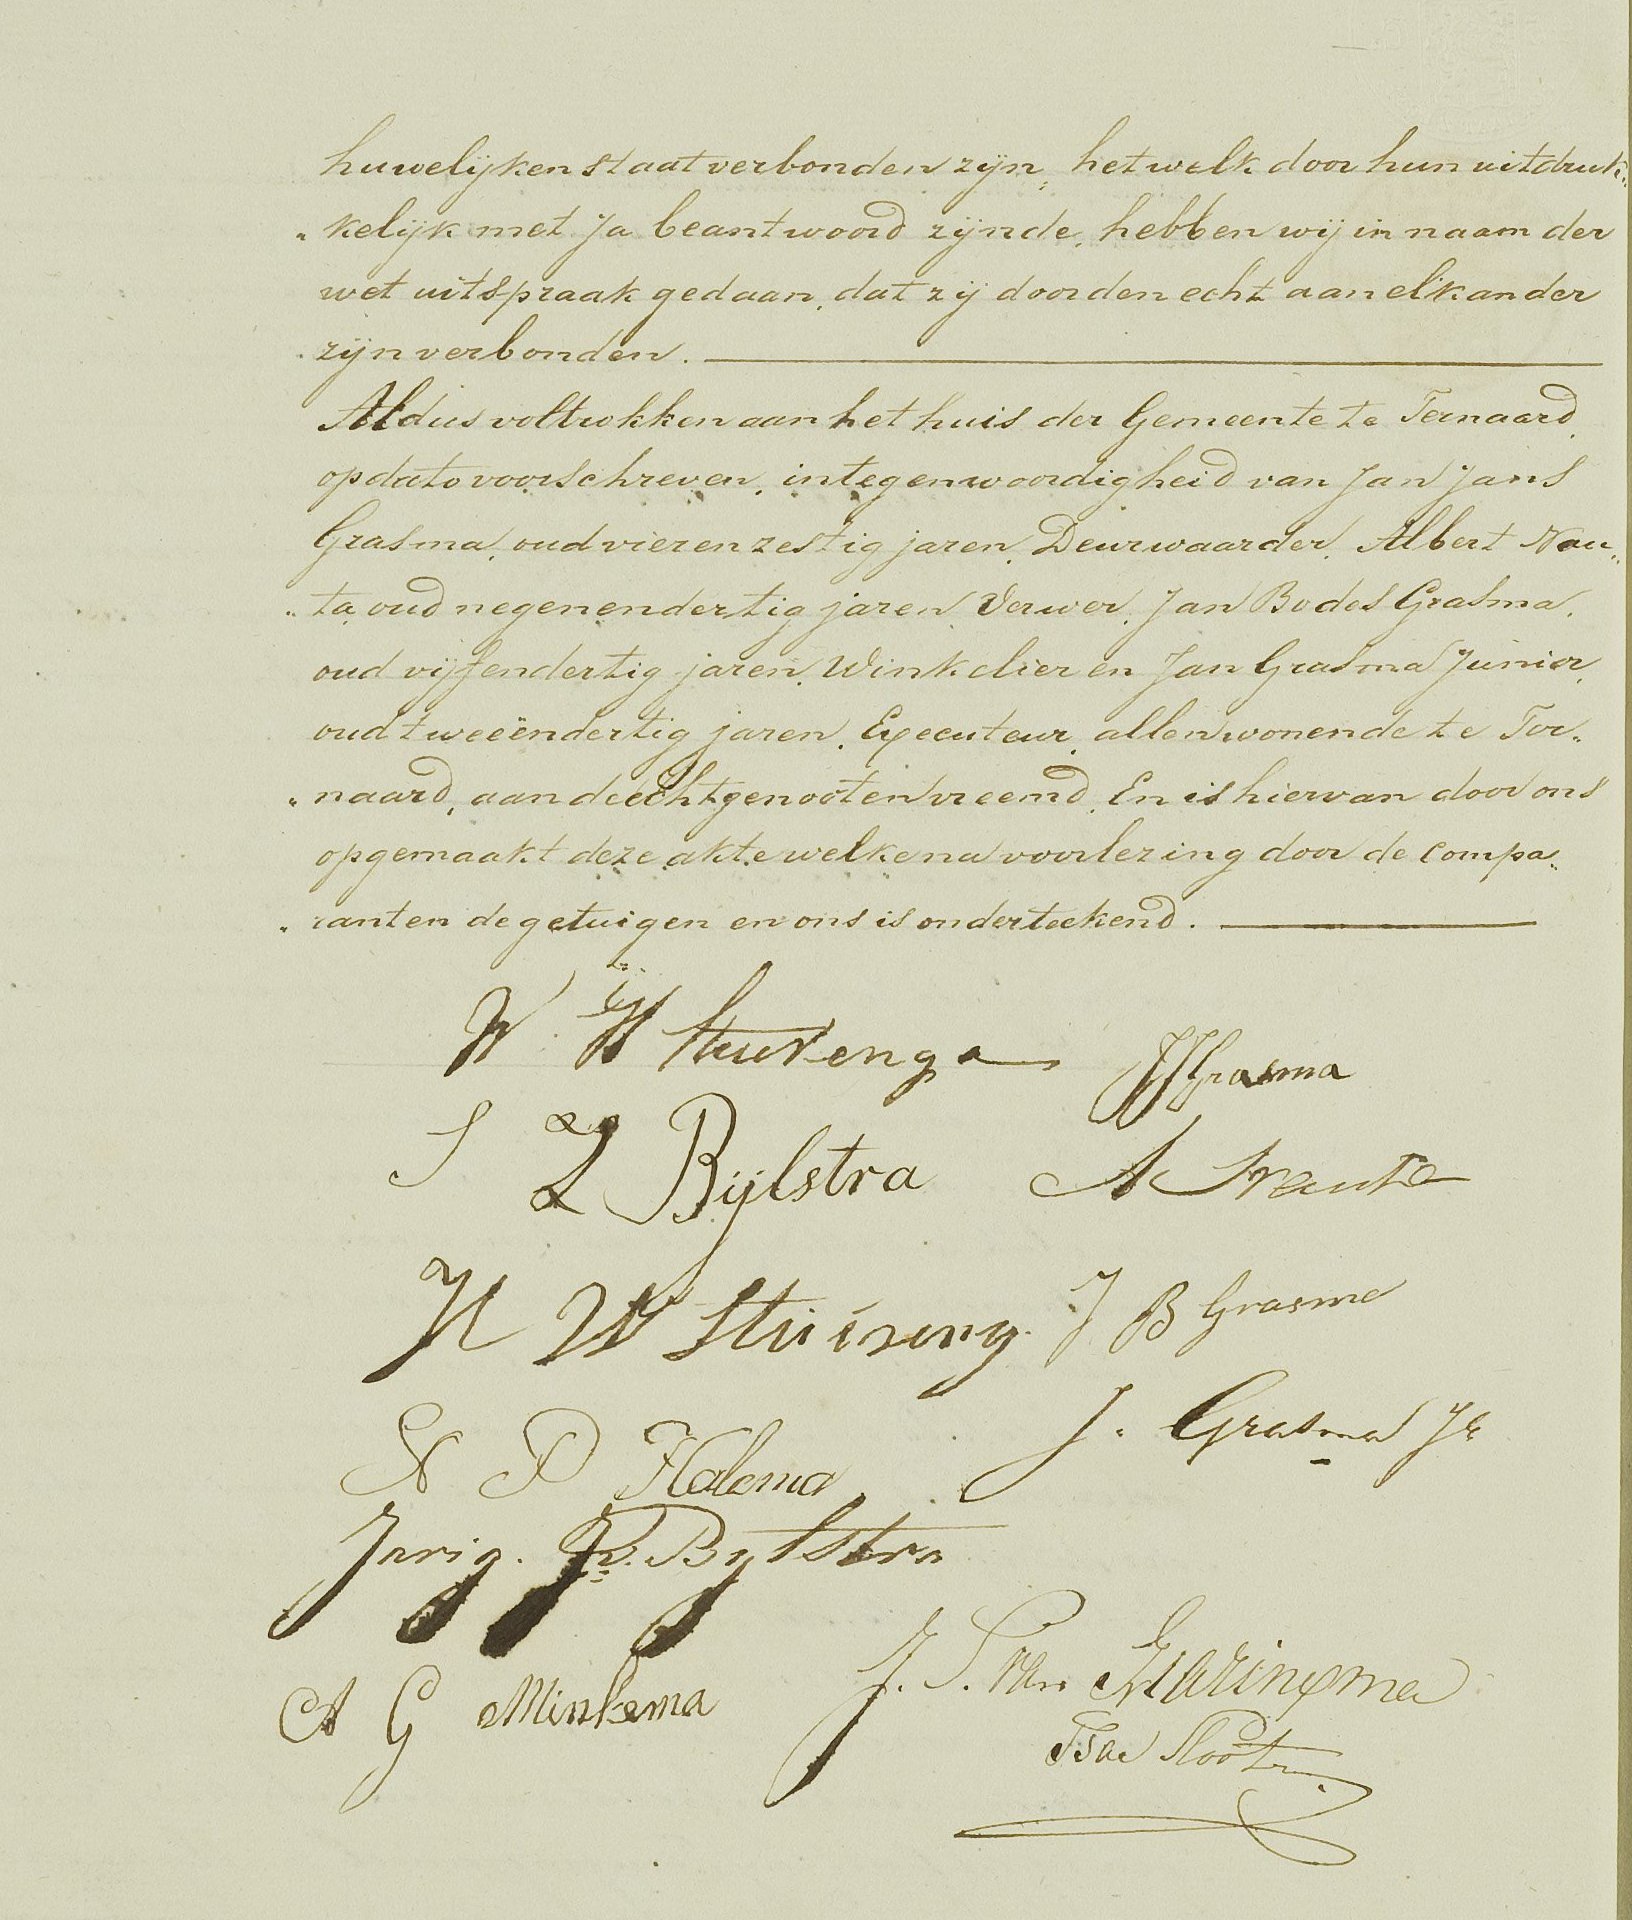 huwelijken staat verbonden zijn, hetwelk door hun uitdruk„
„kelijk met ja beantwoord zijnde, hebben wij in naam der
wet uitspraak gedaan, dat zij door den echt aan elkander
zijn verbonden.
Aldus voltrokken aan het huis der Gemeente te Ternaard,
op dato voorschreven, in tegenwoordigheid van Jan Jans
Grasma, oud vierenzestig jaren, Deurwaarder, Albert Nau„
„ta, oud negenendertig jaren, Verwer, Jan Bodes Grasma,
oud vijfendertig jaren, Winkelier en Jan Grasma Junior,
oud tweeëndertig jaren, Executeur, allen wonende te Ter„
„naard, aan de echtgenooten vreemd. En is hiervan door ons
opgemaakt deze akte welke na voorlezing door de compa„
„ranten de getuigen en ons is onderteekend.
W H
JJ Grasma
S L Bijlstra
A Nauta
H W
J B Grasma
P Halema
J. Grasma Jr
Jarig. Bijlstra
J. S. van
A G Minkema